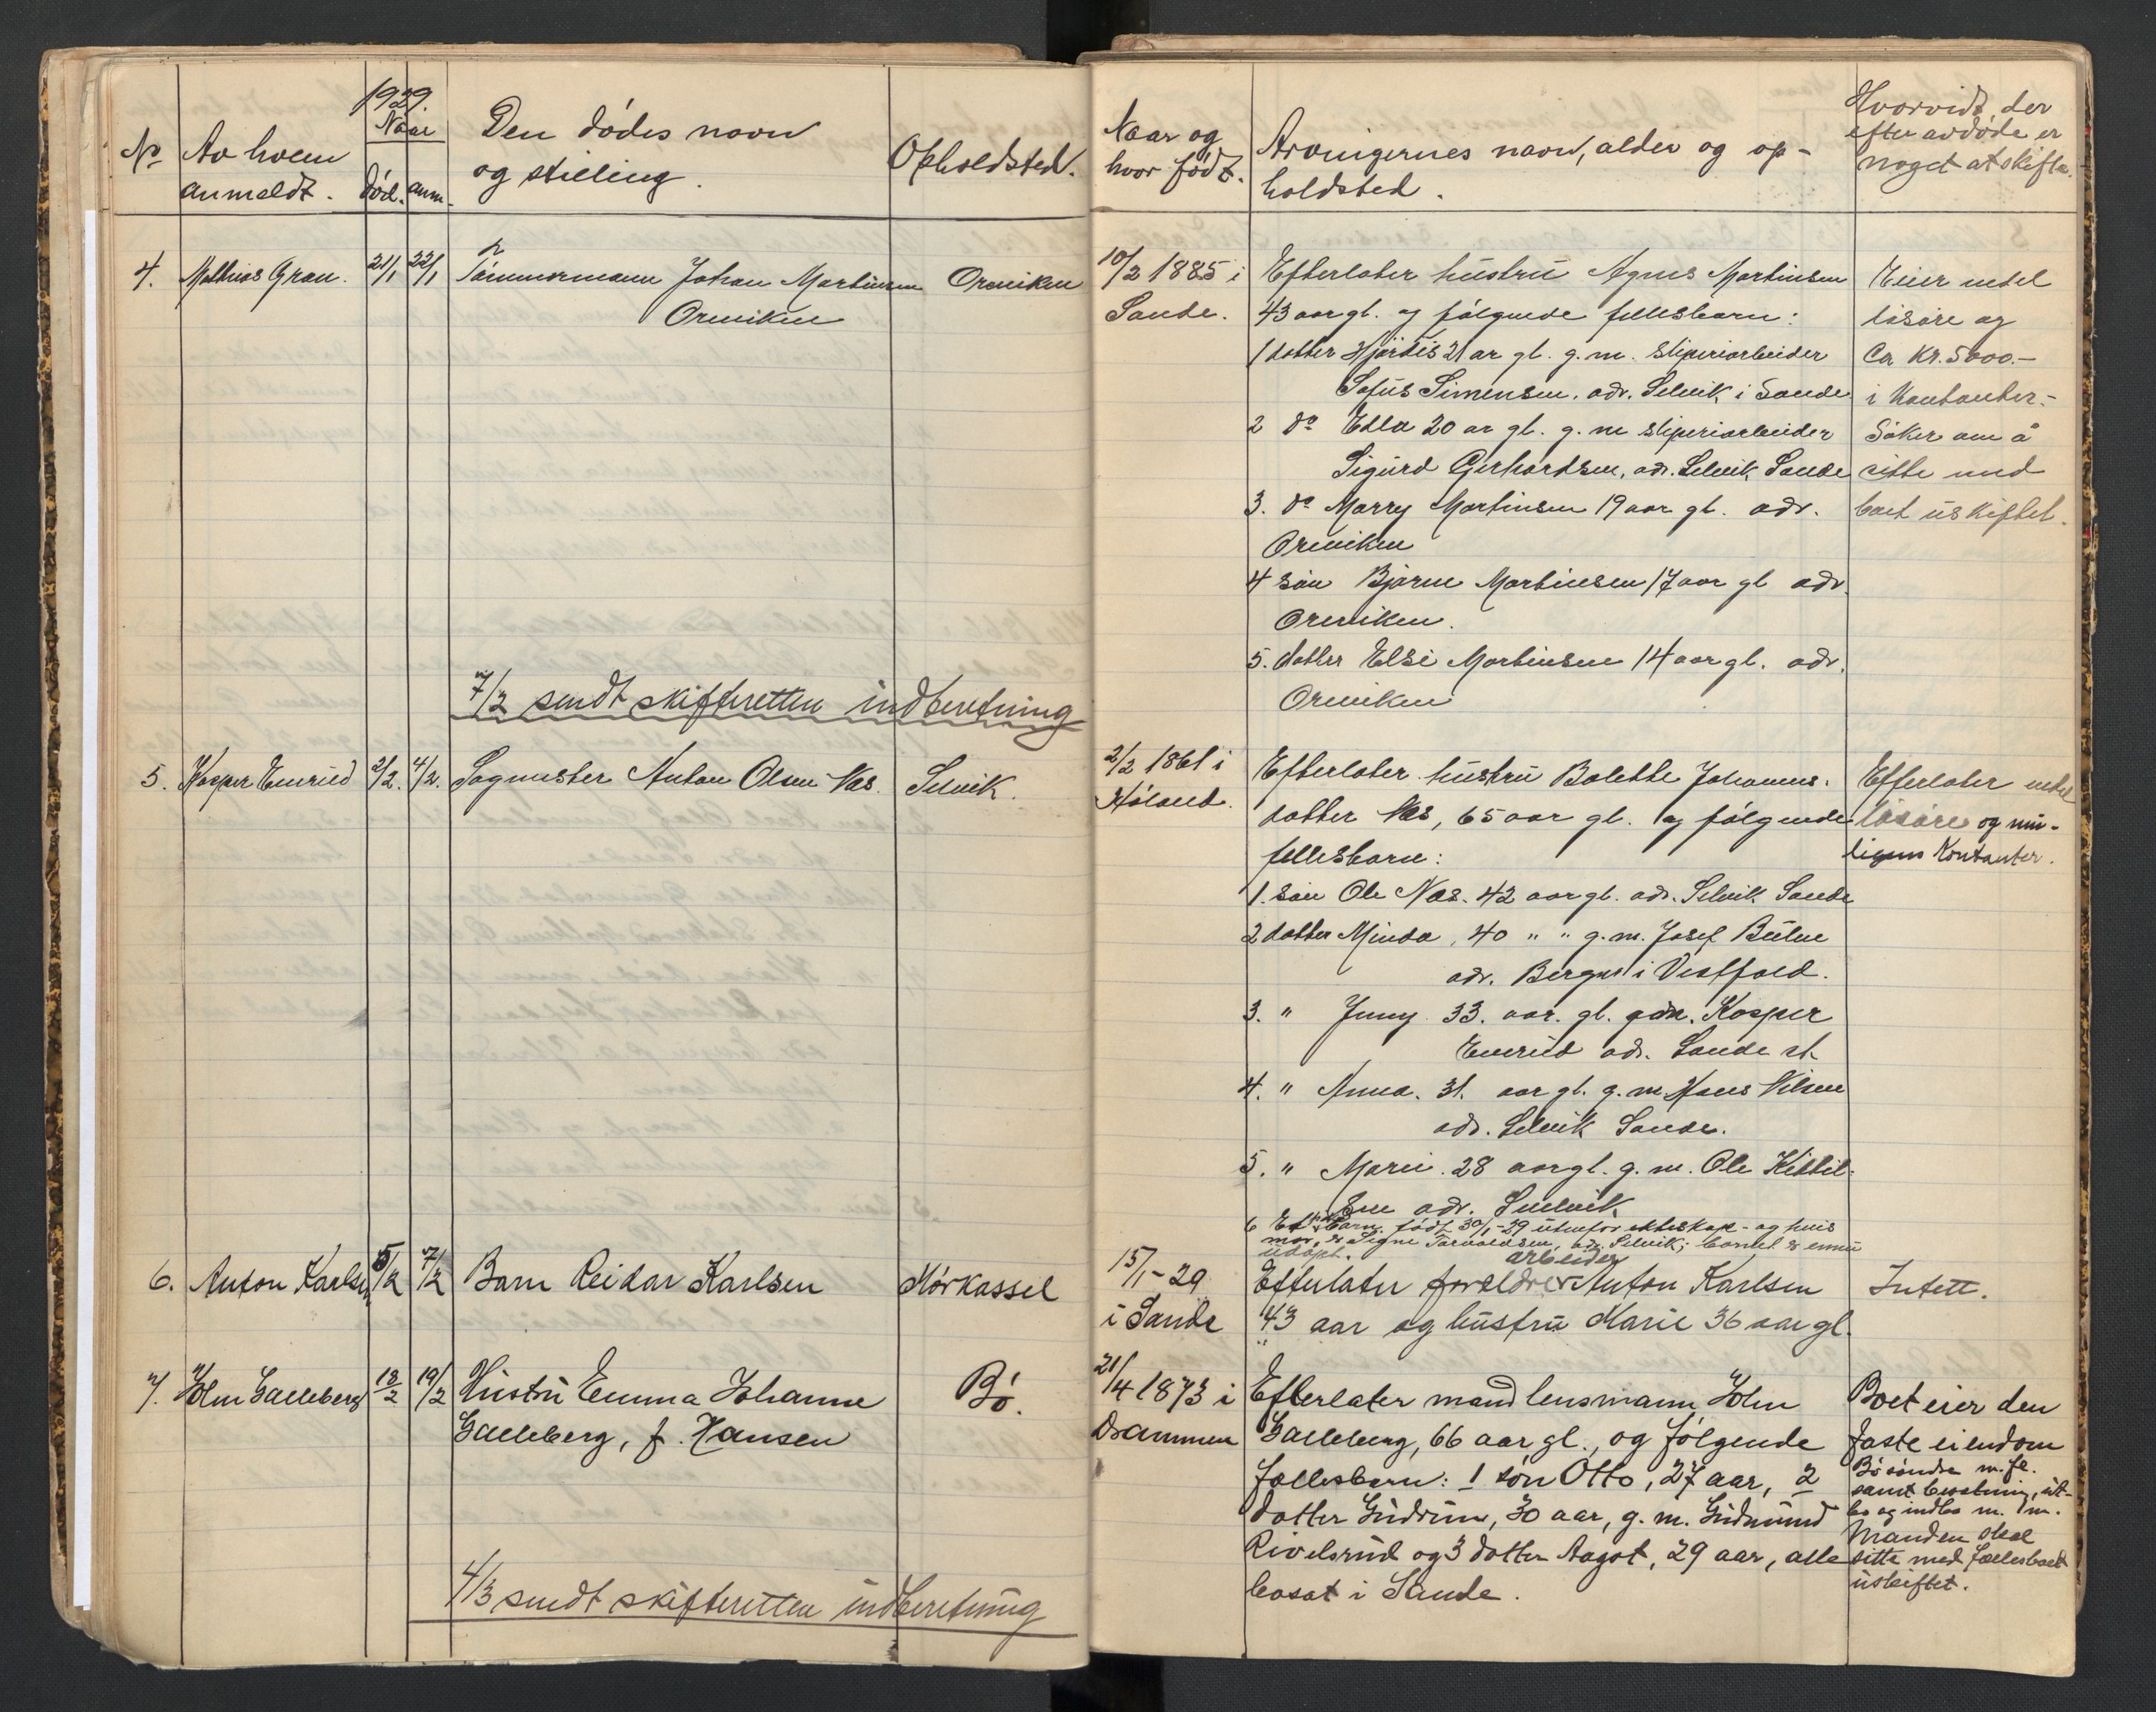 1929.
Naar
No
Av hvem
anmeldt.
død.
anm.
Den dødes navn
og stilling.
Opholdsted.
4. Mathias Gran. 21/1 22/1 Tømmermann Johan Martinsen Oreviken
Oreviken
7/2 sendt skifteretten indberetning
5. Kasper Emrud 2/2. 4/2. Sagmester Anton Olsen Næs. Selvik.
6. Anton Karlsen 5/2 7/2 Barn Reidar Karlsen Mørkassel
7. Holm Galleberg 18/2 19/2 Hustru Emma Johanne Bø.
Galleberg, f. Hansen
4/3 sendt skifteretten indberetning
Naar og
hvor født.
Arvingernes navn, alder og op-
holdsted.
Hvorvidt der
efter avdøde er
noget at skifte.
10/2 1885 i Efterlater hustru Agnes Martinsen Eier endel
Sande. 43 aar gl. og følgende fellesbarn: løsøre og
1 datter Hjørdis 21 ar gl. g.m. sliperiarbeider Ca kr. 5000.-
Sofus Simensen. adr. Selvik i Sande i kontanter.-
2 do Edla 20 ar gl. g.m sliperiarbeider Søker om å
Sigurd Gerhardsen, adr. Selvik Sande sitte med
3. do Marry Martinsen 19 aar gl. adr. boet uskiftet.
Oreviken
4 søn Bjarne Martinsen 17 aar gl adr.
Oreviken.
5. datter Elsi Martinsen 14 aar gl. adr.
Oreviken
2/2 1861 i Efterlater hustru Bolette Johannes- Efterlater endel
Høland. datter Næs, 65 aar gl. og følgende løsøre og mu-
fellesbarn: ligens kontanter.
1. søn Ole Næs. 42 aar gl. adr. Selvik Sande
2 datter Minda, 40 " " g.m. Josef
adr. Berger i Vestfold.
3. " Jenny 33. aar. gl. g.m. Kasper
Emrud adr. Sande st.
4. " Anna. 31. aar gl. g.m. Hans Nilsen
adr. Selvik Sande.
5. " Marie. 28 aar gl. g.m. Ole Kittil-
sen adr. Snelvik
6 Et barn, født 30/1-29 utenfor ekteskap - og hvis
mor er Signe Torvaldsen, adr. Selvik; barnet er ennu
udøpt.
15/1-29 Efterlater foreldre arbeider Anton Karlsen Intett.
i Sande 43 aar og hustru Marie 36 aar gl.
21/4 1873 i Efterlater mand lensmann Holm Boet eier den
Drammen Galleberg, 66 aar gl., og følgende faste eiendom
fællesbarn: 1 søn Otto, 27 aar, 2 Bø søndre m. fl.
datter Gudrun, 30 aar, g.m. Gudmund samt besetning, ut-
Rivelsrud og 3 datter Aagot, 29 aar, alle bo og indbo m. m.
bosat i Sande. Manden skal
sitte med fællesboet
uskiftet.